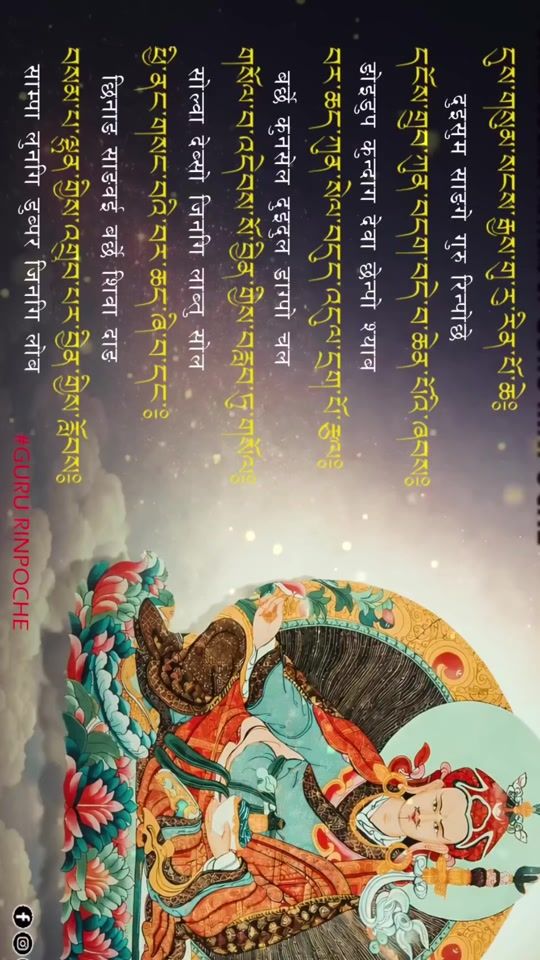 དུས་གསུམ་སངས་རྒྱས་གུ་རུ་རིན་པོ་ཆེ༔
दुइसुम साङगे गुरु रिन्पोछे
དངོས་གྲུབ་ཀུན་བདག་བདེ་བ་ཆེན་པོའི་ཞབས༔
डोइडुप कुन्दाग देवा छेन्पो श्याव
བར་ཆད་ཀུན་སེལ་བདུད་འདུལ་དྲག་པོ་རྩལ༔
बर्छे कुनसेल दुइदुल डाग्पो चल
གསོལ་བ་འདེབས་སོ་བྱིན་གྱིས་བརླབ་ཏུ་གསོལ༔
सोल्वा देब्सो जिनगि लाब्तु सोल
ཕྱི་ནང་གསང་བའི་བར་ཆད་ཞི་བ་དང་༔
छिनाङ साङवई बर्छे शिवा दाङ
བསམ་པ་ལྷུན་གྱིས་འགྲུབ་པར་བྱིན་གྱིས་རློབས༔
साम्पा लुनगि डुब्पर जिनगि लोब
#GURU RINPOCHE